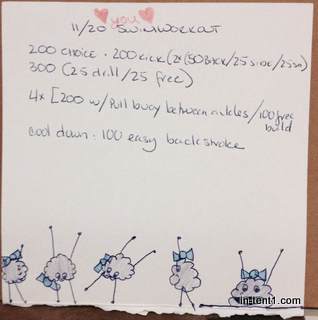 you
11/20 Swim Workout
200 choice · 200 kick (2x(50 Back/25 side/25
300 (25 drill/25 free)
4x [200 w/ Pull buoy between ankles/100 free
build
cool down · 100 easy backstroke
in-tent1.com